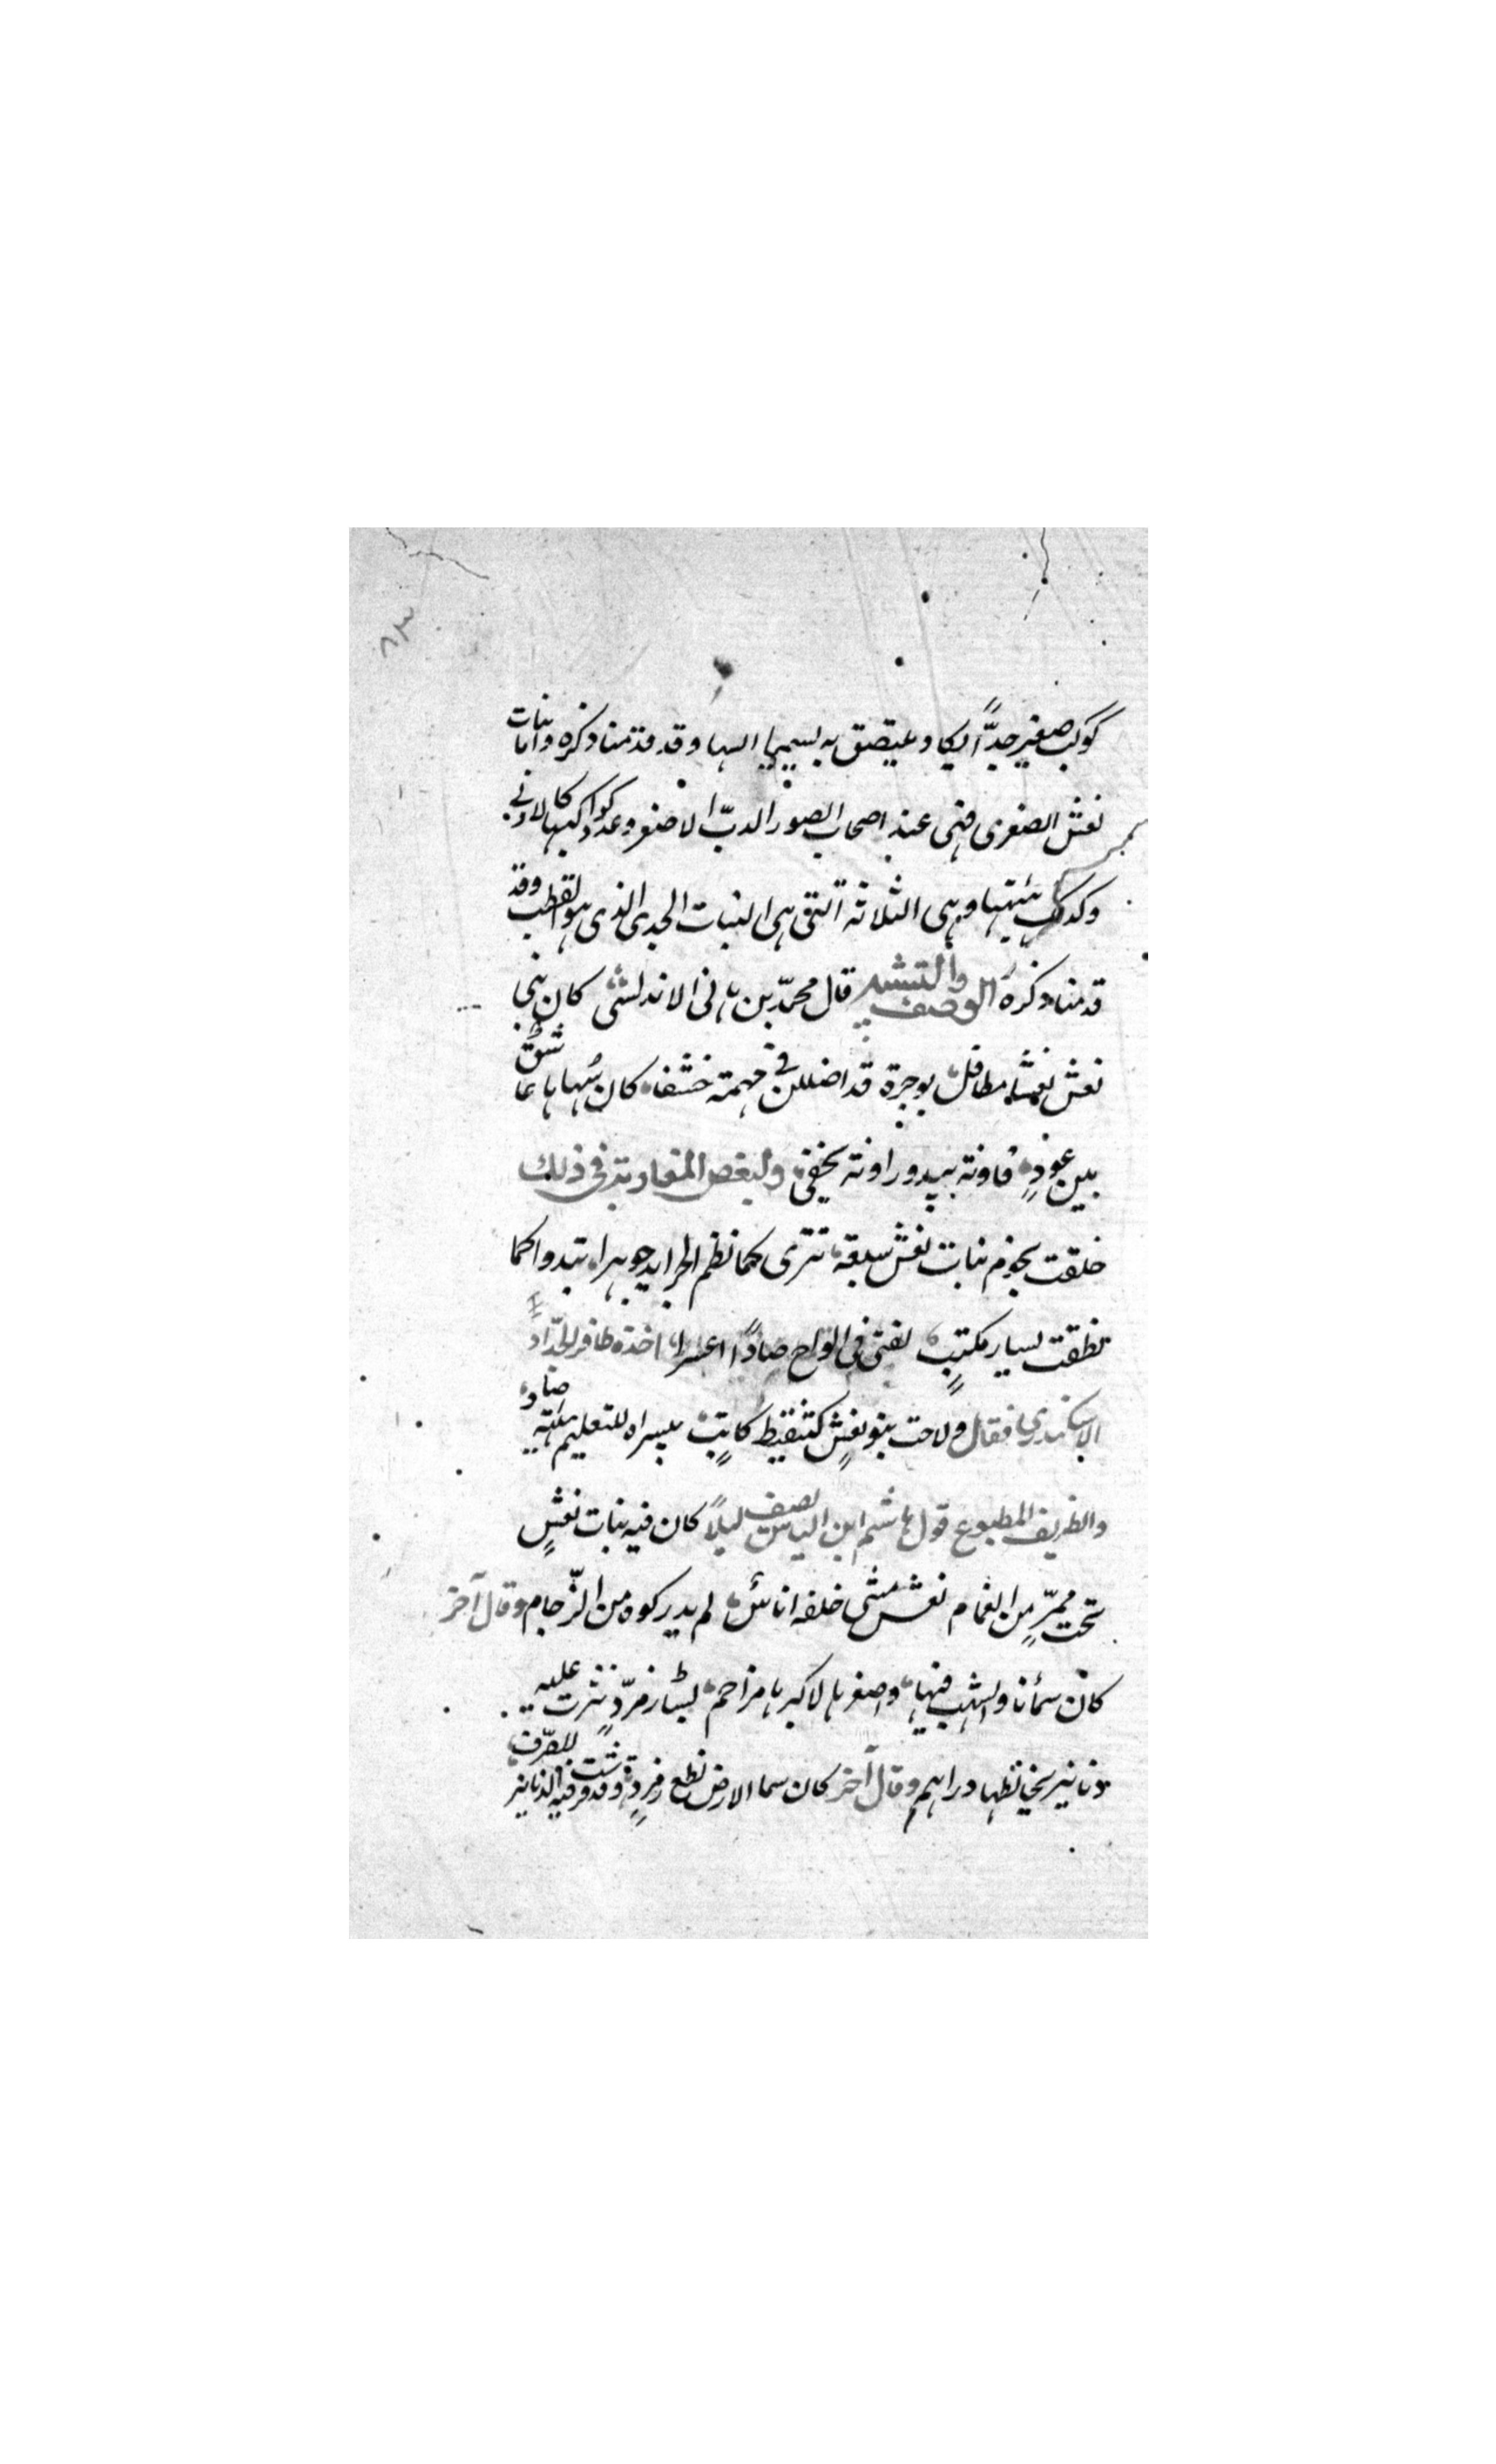 ٨٣
كوكب صغير جدًّا يكاد يلتصق به يسميها السها وقد قدمنا ذكره واما بنات
نعش الصغرى فهى عند اصحاب الصور الدبّ الاصغر وعدد كواكبها كالاولى
وكذلك هيئتها وهى الثلاثة التى هى البنات الجدى الذى هو القطب وقد
قدمنا ذكره الوصف والتشبيه قال محمّد بن هانى الاندلسى كان بنى
نعش نعشا مطافل بوجرة قد اضللن فى مهمه خشفا كان سُهاها عاشق
بين عُوّدٍ فاونة يبدو واونة يخفى ولبعض المغاربة فى ذلك
خلقت نجوم بنات نعش سبعة تترى كما نظم الجرايد جوهرا تبدوا كما
نطقت يسار مكتبٍ لفتى فى الواح صادًا اعسرا اخذه ظافر الحدّاد
الاسكندرى فقال ولاحت بنو نعشٍ كتنقيط كاتبٍ بيسراه للتعليم هيئة صاد
والظريف المطبوع قول هاشم ابن الياس يصف ليلاً كان فيه بنات نعشٍ
تحت ممرّ من الغمام نعش مشى خلفه اناس لم يدركوه من الزّحام وقال آخر
كان سمأنا والشهب فيها واصغرها لاكبرها مزاحم بساط زمرّدٍ نثرت عليه
دنانير تخالطها دراهم وقال آخر كان سما الارض نطع زمردة وقد فرشت فيه الدنانير للصّرف